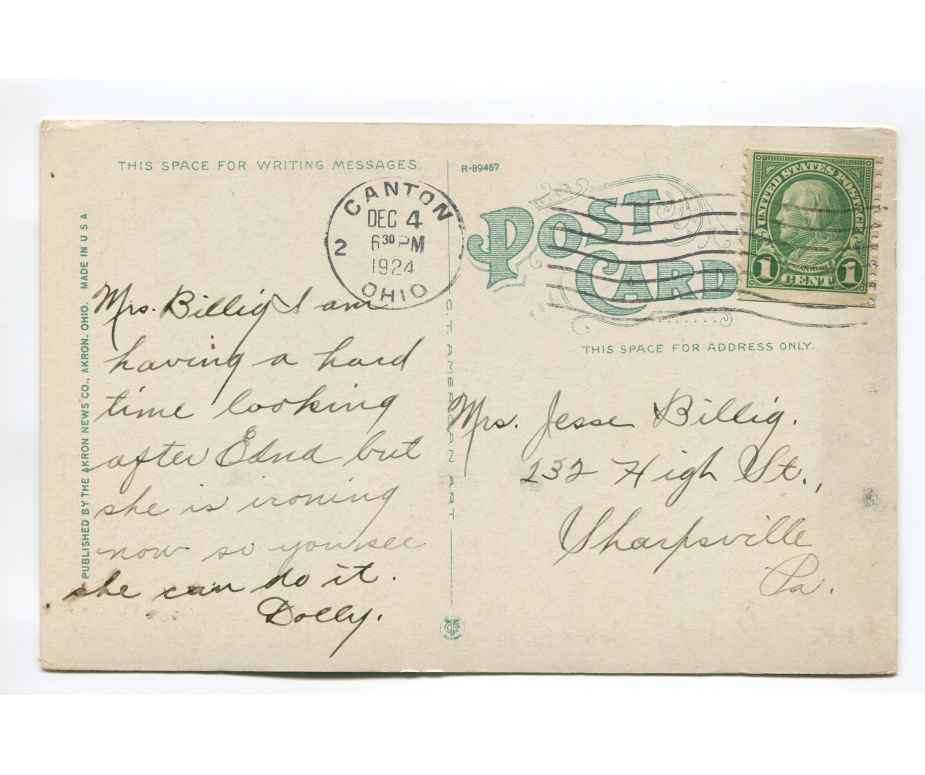 THIS SPACE FOR WRITING MESSAGES.
R-89457
CANTON
DEC 4
6 30 PM
1924
2
OHIO
POST CARD
UNITED STATES POSTAGE
1 CENT 1
THIS SPACE FOR ADDRESS ONLY.
PUBLISHED BY THE AKRON NEWS CO., AKRON, OHIO. MADE IN U S A
Mrs. Billig I am
having a hard
time looking
after Edna but
she is ironing
now so you see
she can do it.
Dolly.
C.T. AMERICAN ART
Mrs. Jesse Billig.
232 High St.,
Sharpsville
Pa.